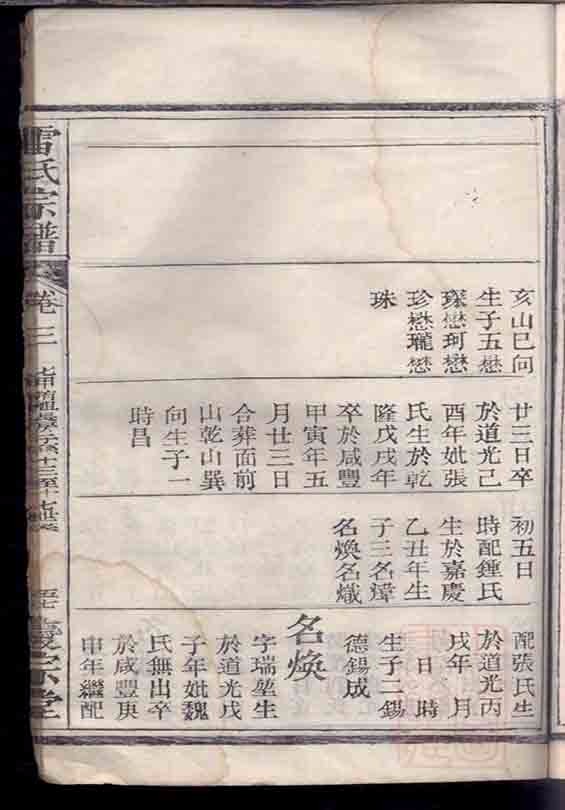 亥山巳向
生子五懋
琛懋珂懋
珍懋瓏懋
珠
廿三日卒
於道光己
酉年妣張
氏生於乾
隆戊戌年
卒於咸豐
甲寅年五
月廿三日
合葬面前
山乾山巽
向生子一
時昌
初五日
時配鍾氏
生於嘉慶
乙丑年生
子三名煒
名煥名熾
配張氏生
於道光丙
戌年 月
日 時
生子二錫
德錫成
名煥
字瑞堃生
於道光戊
子年妣魏
氏無出卒
於咸豐庚
申年繼配
雷氏宗譜
卷三